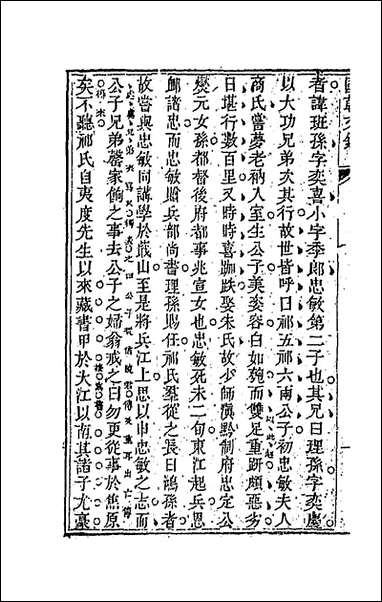 者諱班孫字奕喜小字季郎忠敏第二子也其兄曰理孫字奕慶
以大功兄弟次其行故世皆呼曰祁五祁六兩公子初忠敏夫人
商氏嘗夢老衲入室生公子美姿容白如瓠而雙足重趼頗惡劣
日堪行數百里又時時喜跏趺娶朱氏故少師滇黔制府忠定公
燮元女孫都督後府都事兆宣女也忠敏死未二旬東江起兵恩
卹諸忠而忠敏贈兵部尚書理孫賜任祁氏羣從之長曰鴻孫者
故嘗與忠敏同講學於蕺山至是將兵江上思以申忠敏之志而
公子兄弟罄家餉之事去公子之婦翁戒之曰勿更從事於焦原
矣不聽祁氏自夷度先生以來藏書甲於大江以南其諸子尤豪